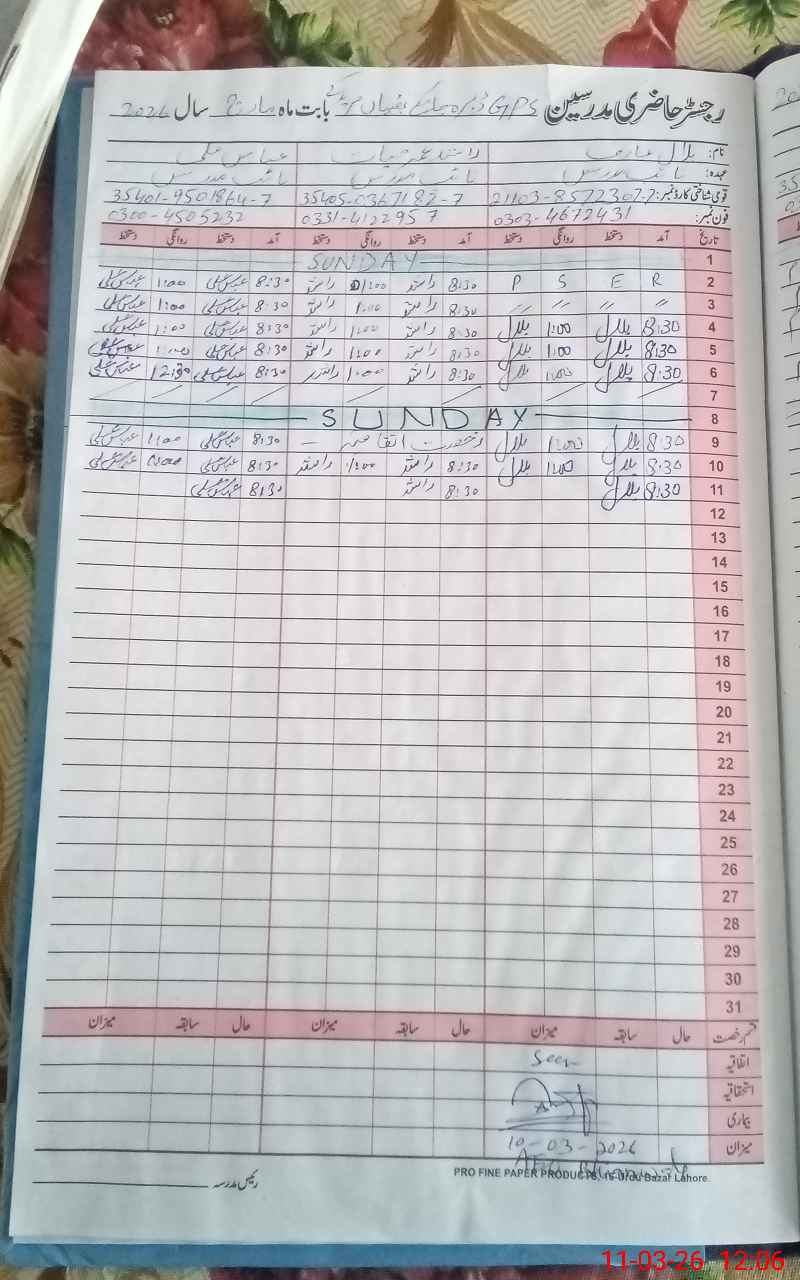 رجسٹر حاضری مدرسین GPS ڈیرہ بابت ماہ مارچ سال 2026
نام: بلال عارف راشد عمر حیات عباس علی
عہدہ: نائب مدرس نائب مدرس نائب مدرس
قومی شناختی کارڈ نمبر: 21103-8572307-7 35405-0367182-7 35401-9501864-7
فون نمبر: 0303-4672431 0331-4122957 0300-4505232
تاریخ آمد دستخط روانگی دستخط آمد دستخط روانگی دستخط آمد دستخط روانگی دستخط
1 SUNDAY
2 R E S P 8:30 راشد 1:00 راشد 8:30 عباس علی 1:00 عباس علی
3 〃 〃 〃 〃 8:30 راشد 1:00 راشد 8:30 عباس علی 1:00 عباس علی
4 8:30 بلال 1:00 بلال 8:30 راشد 1:00 راشد 8:30 عباس علی 1:00 عباس علی
5 8:30 بلال 1:00 بلال 8:30 راشد 1:00 راشد 8:30 عباس علی 1:00 عباس علی
6 8:30 بلال 1:00 بلال 8:30 راشد 1:00 راشد 8:30 عباس علی 12:30 عباس علی
7
8 SUNDAY
9 8:30 بلال 1:00 بلال رخصت اتفاقیہ 8:30 عباس علی 1:00 عباس علی
10 8:30 بلال 1:00 بلال 8:30 راشد 1:00 راشد 8:30 عباس علی 1:00 عباس علی
11 8:30 بلال 8:30 راشد 8:30 عباس علی
12
13
14
15
16
17
18
19
20
21
22
23
24
25
26
27
28
29
30
31
قسم رخصت حال سابقہ میزان حال سابقہ میزان حال سابقہ میزان
اتفاقیہ Seen
استحقاقیہ
بیماری
میزان 10-03-2026
PRO FINE PAPER PRODUCTS, 16-Urdu Bazar Lahore.
رئیس مدرسہ
11-03-26 12:06